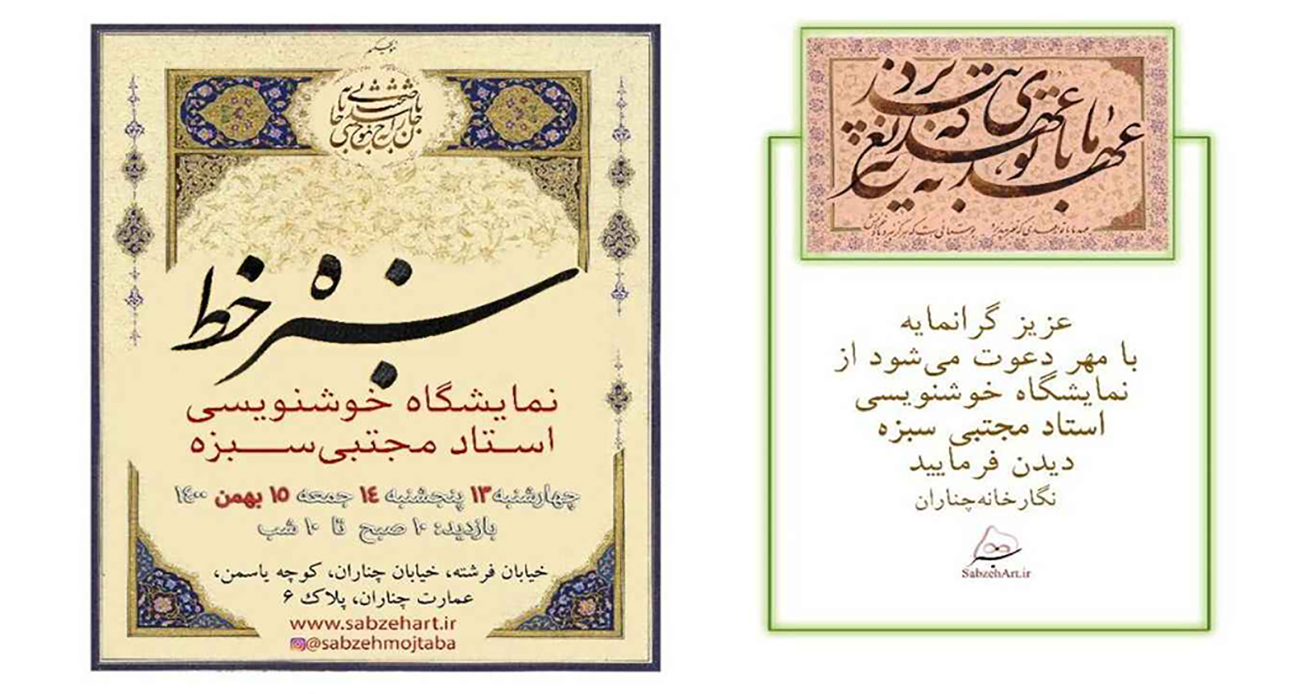 سبزه خط
نمایشگاه خوشنویسی
استاد مجتبی سبزه
چهارشنبه ۱۳ پنجشنبه ۱۴ جمعه ۱۵ بهمن ۱۴۰۰
بازدید: ۱۰ صبح تا ۱۰ شب
خیابان فرشته، خیابان چناران، کوچه یاسمن،
عمارت چناران، پلاک ۶
www.sabzehart.ir
@sabzehmojtaba
عزیز گرانمایه
با مهر دعوت می‌شود از
نمایشگاه خوشنویسی
استاد مجتبی سبزه
دیدن فرمایید
نگارخانه چناران
SabzehArt.ir